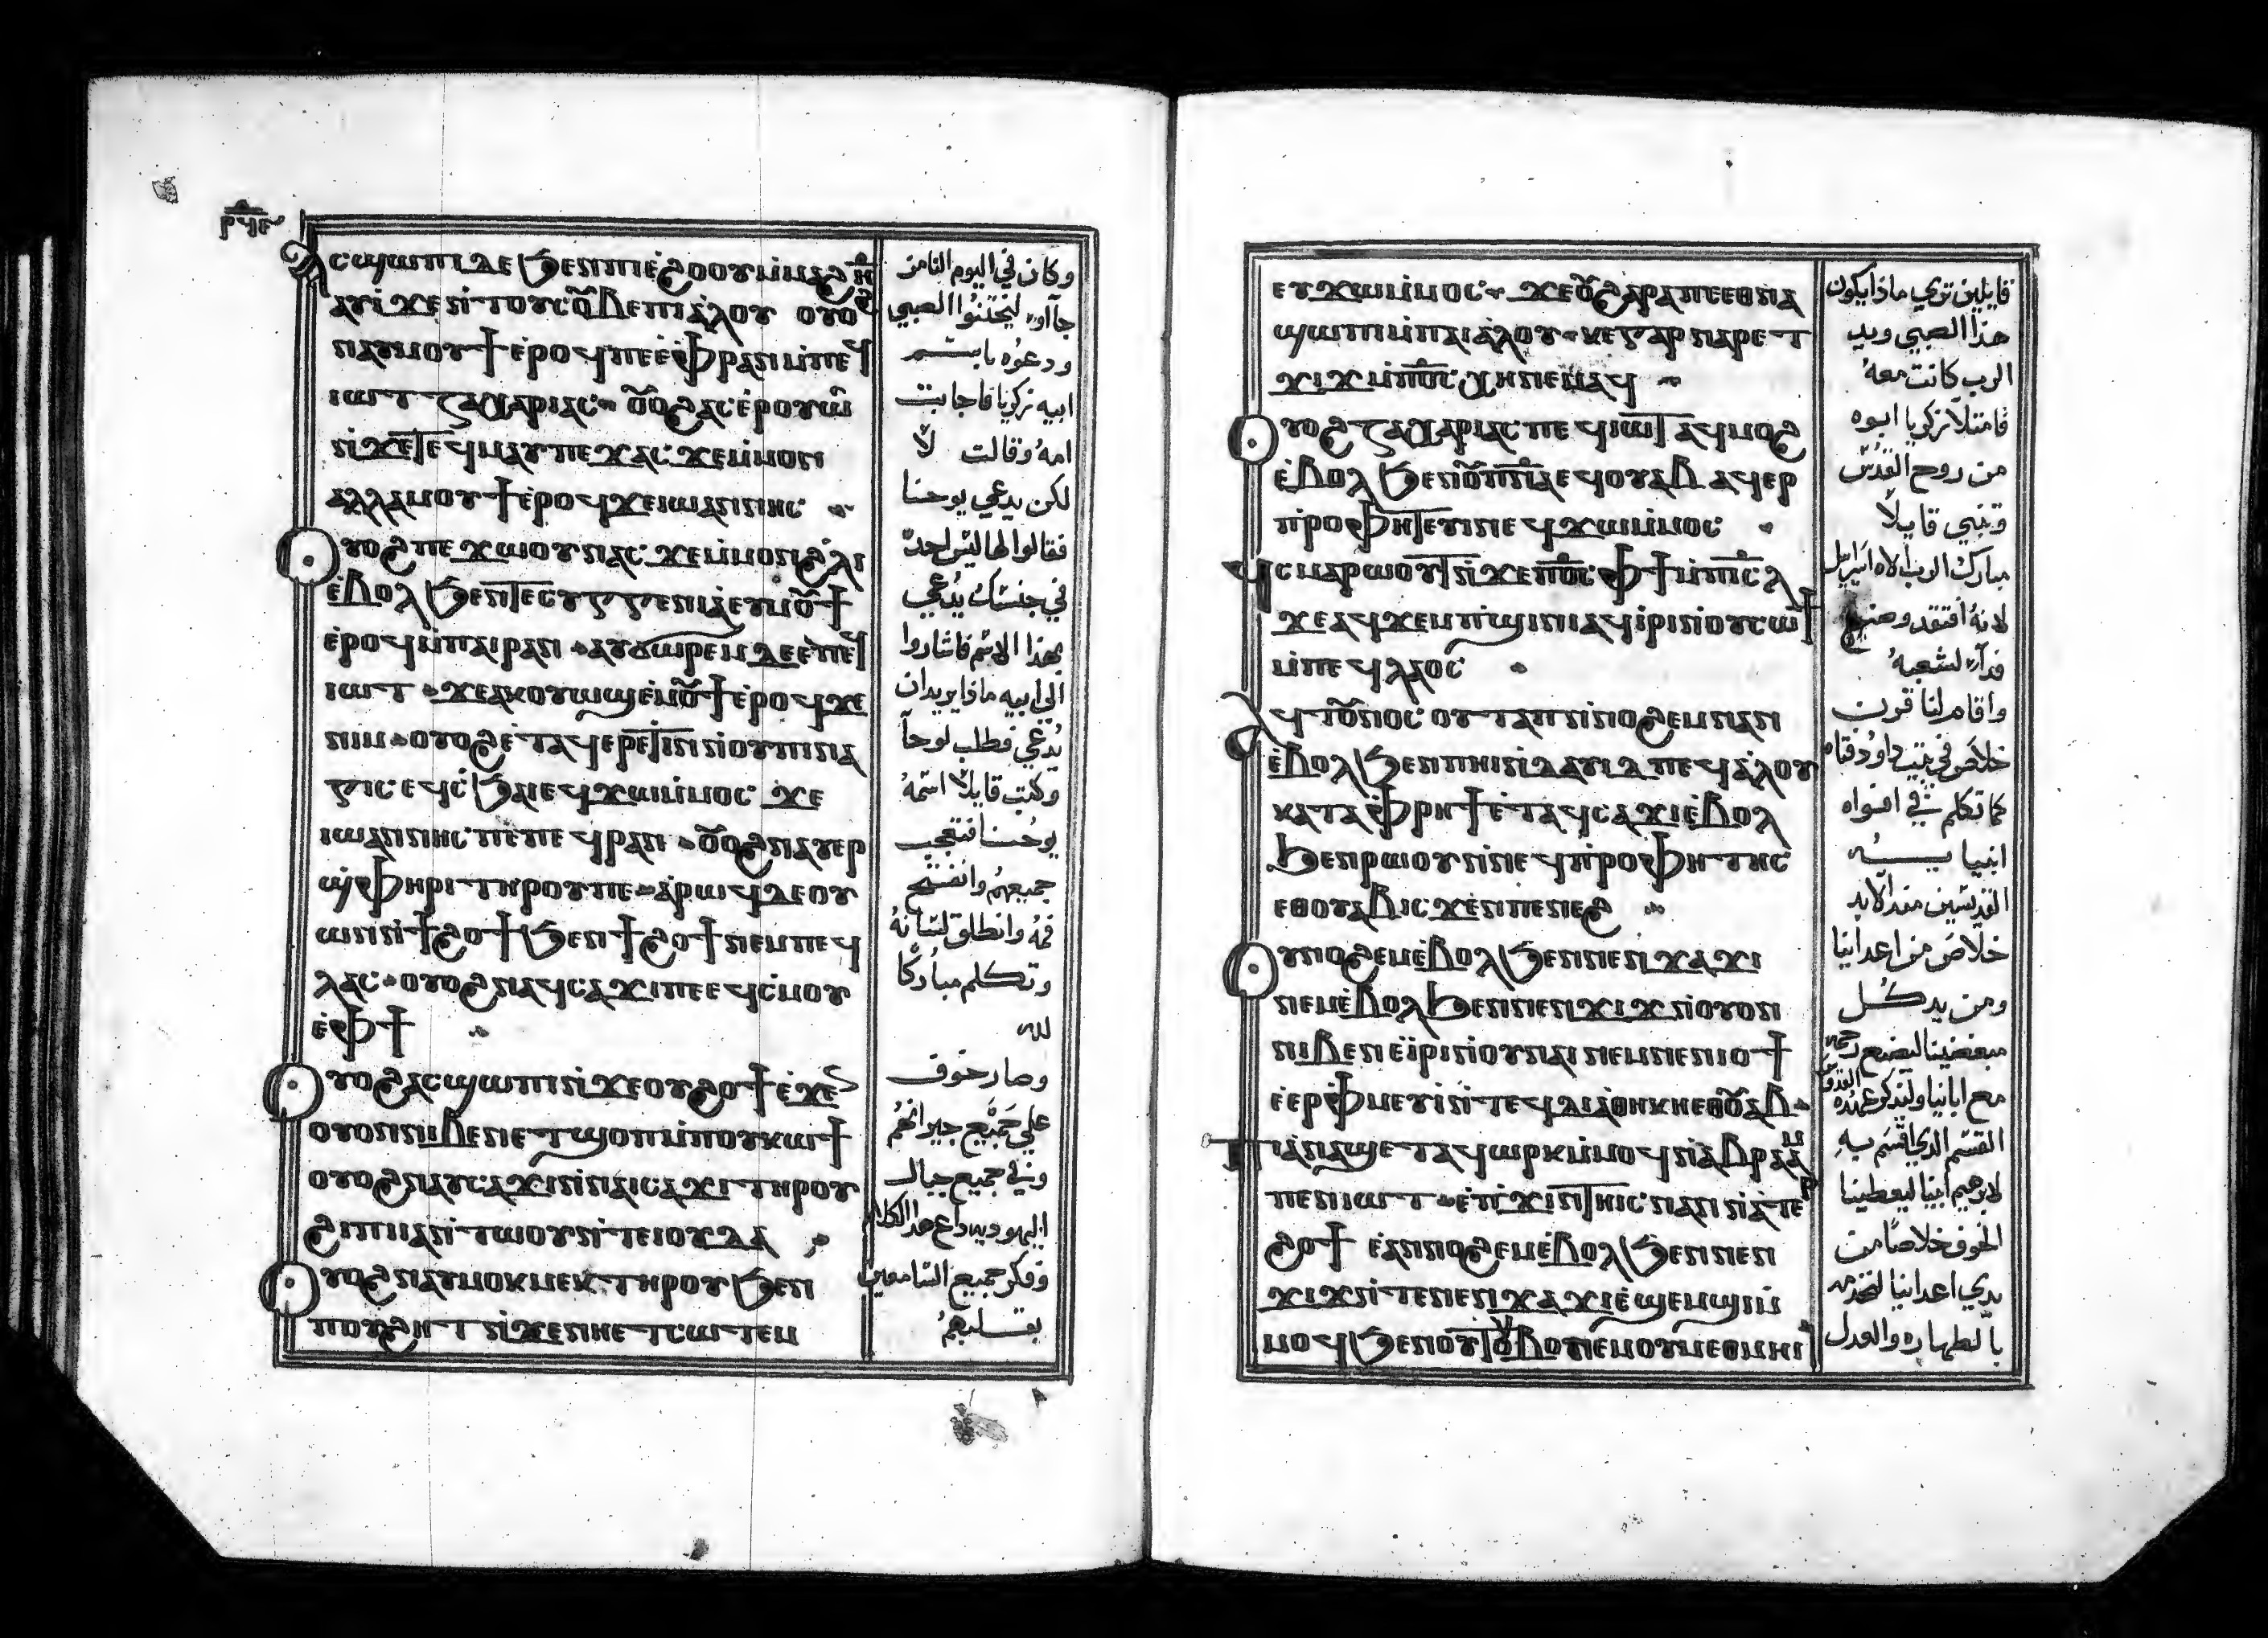 ⲣϥⲉ
ⲁⲥϣⲱⲡⲓ ⲇⲉ ϧⲉⲛ ⲡⲓⲉϩⲟⲟⲩ ⲙⲙⲁϩ ⲏ̅
ⲁⲩⲓ̀ ϫⲉ ⲛ̀ⲧⲟⲩⲥⲟⲩⲃⲉ ⲡⲓⲁ̀ⲗⲟⲩ ⲟⲩⲟϩ
ⲛⲁⲩⲙⲟⲩϯ ⲉ̀ⲣⲟϥ ⲡⲉ ⲉ̀ⲫ̀ⲣⲁⲛ ⲙ̀ⲡⲉϥ
ⲓⲱⲧ ⲍⲁⲭⲁⲣⲓⲁⲥ ⲟⲩⲟϩ ⲁⲥⲉ̀ⲣⲟⲩⲱ̀
ⲛ̀ϫⲉ ⲧⲉϥⲙⲁⲩ ⲡⲉϫⲁⲥ ϫⲉ ⲙ̀ⲙⲟⲛ
ⲁⲗⲗⲁ ⲙⲟⲩϯ ⲉ̀ⲣⲟϥ ϫⲉ ⲓⲱⲁⲛⲛⲏⲥ
ⲟⲩⲟϩ ⲡⲉϫⲱⲟⲩ ⲛⲁⲥ ϫⲉ ⲙ̀ⲙⲟⲛ ϩ̀ⲗⲓ
ⲉ̀ⲃⲟⲗ ϧⲉⲛ ⲧⲉⲥⲩⲅⲅⲉⲛⲓⲁ ⲉⲩⲙⲟⲩϯ
ⲉ̀ⲣⲟϥ ⲙ̀ⲡⲁⲓⲣⲁⲛ ⲁⲩϭⲱⲣⲉⲙ ⲇⲉ ⲉ̀ⲡⲉϥ
ⲓⲱⲧ ϫⲉ ⲁⲕⲟⲩⲱϣ ⲉ̀ⲙⲟⲩϯ ⲉ̀ⲣⲟϥ ϫⲉ
ⲛⲓⲙ ⲟⲩⲟϩ ⲉ̀ⲧⲁϥⲉⲣⲉⲧⲓⲛ ⲛ̀ⲟⲩⲡⲓⲛⲁ
ⲅⲓⲥ ⲉϥⲥ̀ϧⲁⲓ ⲉϥϫⲱ ⲙ̀ⲙⲟⲥ ϫⲉ
ⲓⲱⲁⲛⲛⲏⲥ ⲡⲉ ⲡⲉϥⲣⲁⲛ ⲟⲩⲟϩ ⲛⲁⲩⲉⲣ
ϣ̀ⲫⲏⲣⲓ ⲧⲏⲣⲟⲩ ⲡⲉ ⲁ̀ⲣⲱϥ ⲇⲉ ⲟⲩ
ⲱⲛ ⲛ̀ϯϩⲟϯ ϧⲉⲛ ϯϩⲟϯ ⲛⲉⲙ ⲡⲉϥ
ⲗⲁⲥ ⲟⲩⲟϩ ⲛⲁϥⲥⲁϫⲓ ⲡⲉ ⲉϥⲥ̀ⲙⲟⲩ
ⲉ̀ⲫϯ
ⲟⲩⲟϩ ⲁⲥϣⲱⲡⲓ ⲛ̀ϫⲉ ⲟⲩϩⲟϯ ⲉ̀ϫⲉⲛ
ⲟⲩⲟⲛ ⲛⲓⲃⲉⲛ ⲉⲧϣⲟⲡ ⲙ̀ⲡⲟⲩⲕⲱϯ
ⲟⲩⲟϩ ⲛⲁⲩⲥⲁϫⲓ ⲛ̀ⲛⲁⲓⲥⲁϫⲓ ⲧⲏⲣⲟⲩ
ϩⲓ ⲡⲓⲁⲛⲧⲱⲟⲩ ⲛ̀ⲧⲉ ⲓⲟⲩⲇⲁ
ⲟⲩⲟϩ ⲛⲁⲩⲙⲟⲕⲙⲉⲕ ⲧⲏⲣⲟⲩ ϧⲉⲛ
ⲡⲟⲩϩⲏⲧ ⲛ̀ϫⲉ ⲛⲏ ⲉⲧⲥⲱⲧⲉⲙ
وكان في اليوم الثامن
جآاوا ليختنوا الصبي
ودعوه باسم
ابيه زكريا فاجابت
امه وقالت لا
لكن يدعي يوحنا
فقالوا لها ليس احد
في جنسك يدعي
بهذا الاسم فاشاروا
الي ابيه ماذا يريد ان
يدعي فطلب لوحآ
وكتب قايلا اسمه
يوحنا فتعجب
جميعهم وانفتح
فمه وانطلق لسانه
وتكلم مباركا
لله
وصار خوف
علي جميع جيرانهم
وفي جميع جبال
اليهوديه ذاع هذا الكلام
وفكر جميع السامعين
بقلبهم
ⲉⲩϫⲱ ⲙ̀ⲙⲟⲥ ϫⲉ ⲟⲩ ϩⲁⲣⲁ ⲡⲉⲑⲛⲁ
ϣⲱⲡⲓ ⲙ̀ⲡⲁⲓⲁ̀ⲗⲟⲩ ⲕⲉ ⲅⲁⲣ ⲛⲁⲣⲉ ⲧ
ϫⲓϫ ⲙ̀ⲡⲟ̅ⲥ̅ ⲭⲏ ⲛⲉⲙⲁϥ
ⲟⲩⲟϩ ⲍⲁⲭⲁⲣⲓⲁⲥ ⲡⲉϥⲓⲱⲧ ⲁϥⲙⲟϩ
ⲉ̀ⲃⲟⲗ ϧⲉⲛ ⲟⲩⲡ̅ⲛ̅ⲁ̅ ⲉϥⲟⲩⲁⲃ ⲁϥⲉⲣ
ⲡ̀ⲣⲟⲫⲏⲧⲉⲩⲓⲛ ⲉϥϫⲱ ⲙ̀ⲙⲟⲥ
ϥⲥⲙⲁⲣⲱⲟⲩⲧ ⲛ̀ϫⲉ ⲡⲟ̅ⲥ̅ ⲫϯ ⲙ̀ⲡⲓ̅ⲥ̅ⲗ̅
ϫⲉ ⲁϥϫⲉⲙⲡ̀ϣⲓⲛⲓ ⲁϥⲓ̀ⲣⲓ ⲛ̀ⲟⲩⲥⲱϯ
ⲙ̀ⲡⲉϥⲗⲁⲟⲥ
ⲁϥⲧⲟⲩⲛⲟⲥ ⲟⲩⲧⲁⲡ ⲛ̀ⲛⲟϩⲉⲙ ⲛⲁⲛ
ⲉ̀ⲃⲟⲗ ϧⲉⲛ ⲡⲏⲓ ⲛ̀ⲇⲁⲩⲓⲇ ⲡⲉϥⲁ̀ⲗⲟⲩ
ⲕⲁⲧⲁ ⲫ̀ⲣⲏϯ ⲉ̀ⲧⲁϥⲥⲁϫⲓ ⲉ̀ⲃⲟⲗ
ϧⲉⲛ ⲣⲱⲟⲩ ⲛ̀ⲛⲉϥⲡ̀ⲣⲟⲫⲏⲧⲏⲥ
ⲉⲑⲟⲩⲁⲃ ⲓⲥϫⲉⲛ ⲡⲉⲛⲉϩ
ⲟⲩⲛⲟϩⲉⲙ ⲉ̀ⲃⲟⲗ ϧⲉⲛ ⲛⲉⲛϫⲁϫⲓ
ⲛⲉⲙ ⲉ̀ⲃⲟⲗ ϧⲉⲛ ⲛⲉⲛϫⲓϫ ⲛ̀ⲟⲩⲟⲛ
ⲛⲓⲃⲉⲛ ⲉ̀ⲓ̀ⲣⲓ ⲛ̀ⲟⲩⲛⲁⲓ ⲛⲉⲙ ⲛⲉⲛⲓⲟϯ
ⲉ̀ⲉⲣⲫ̀ⲙⲉⲩⲓ̀ ⲛ̀ⲧⲉϥⲇⲓⲁⲑⲏⲕⲏ ⲉⲑⲟⲩⲁⲃ
ⲡⲓⲁⲛⲁϣ ⲉⲧⲁϥⲱⲣⲕ ⲙ̀ⲙⲟϥ ⲛ̀ⲁⲃⲣⲁⲁⲙ
ⲡⲉⲛⲓⲱⲧ ⲉ̀ⲡ̀ϫⲓⲛⲧⲏⲓⲥ ⲛⲁⲛ ⲛ̀ⲁⲧⲉⲣ
ϩⲟϯ ⲉ̀ⲁⲛⲛⲟϩⲉⲙ ⲉ̀ⲃⲟⲗ ϧⲉⲛ ⲛⲉⲛ
ϫⲓϫ ⲛ̀ⲧⲉ ⲛⲉⲛϫⲁϫⲓ ⲉ̀ϣⲉⲙϣⲓ ⲙ̀
ⲙⲟϥ ϧⲉⲛ ⲟⲩⲧⲟⲩⲃⲟ ⲛⲉⲙ ⲟⲩⲙⲉⲑⲙⲏⲓ
قايلين تري ماذا يكون
هذا الصبي ويد
الرب كانت معه
فامتلآ زكريا ابوه
من روح القدس
وتنبي قايلا
مبارك الرب الاه اسراييل
لانه افتقد وصنع
فدآء لشعبه
واقام لنا قرن
خلاص في بيت داوود فتاه
كما تكلم في افواه
انبيايه
القديسين منذ الابد
خلاص من اعداينا
ومن يد كل
مبغضينا ليصنع رحمه
مع ابآينا وليذكر عهده القدوس
القسم الذي اقسم به
لابرهيم ابينا ليعطينا
الخوف خلاصا من
يدي اعداينا لنخدمه
بالطهاره والعدل